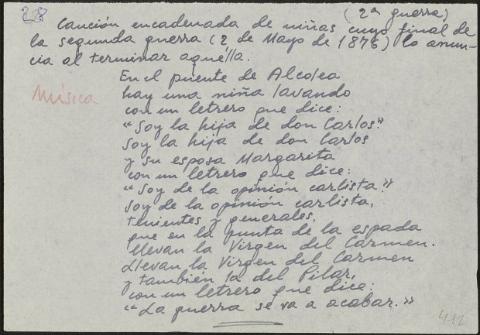 28
(2ª guerra)
Canción encadenada de niñas cuyo final de
la segunda guerra (2 de Mayo de 1876) lo anun-
cia al terminar aquélla.
Música
En el puente de Alcolea
hay una niña lavando
con un letrero que dice:
"Soy la hija de don Carlos"
Soy la hija de don Carlos
y su esposa Margarita
con un letrero que dice:
"Soy de la opinión carlista."
Soy de la opinión carlista,
tenientes y generales,
que en la punta de la espada
llevan la Virgen del Carmen.
Llevan la Virgen del Carmen
y también la del Pilar,
con un letrero que dice:
"La guerra se va a acabar."
412